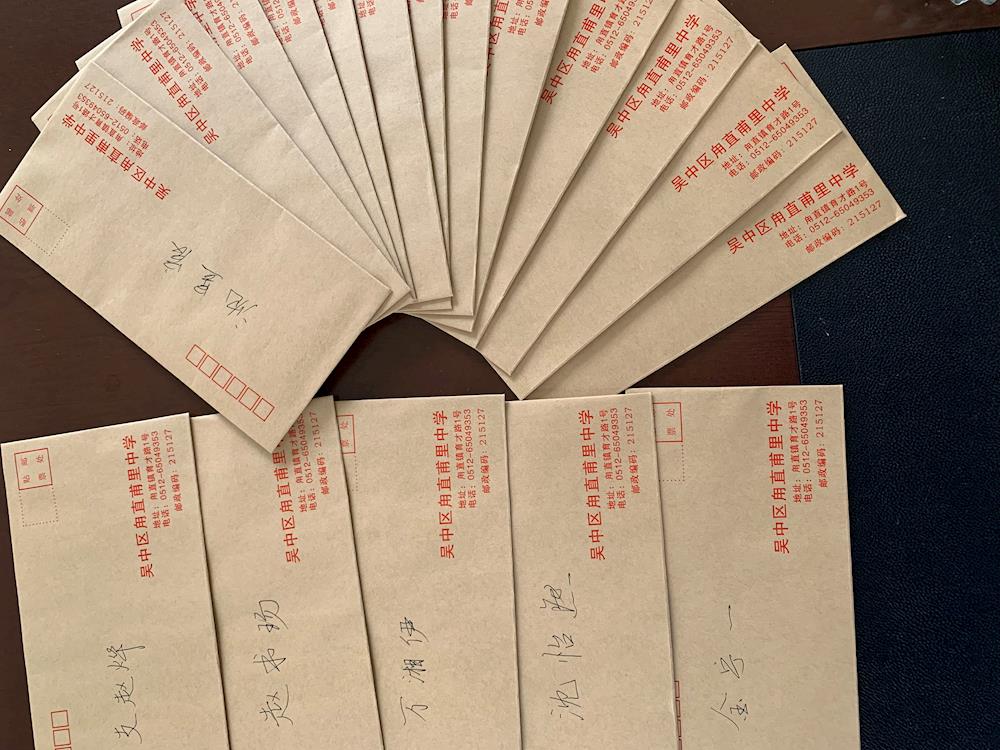 吴中区甪直甫里中学
地址：甪直镇育才路1号
电话：0512-65049353
邮政编码：215127
贴邮
票处
沈
吴中区甪直甫里中学
地址：甪直镇育才路1号
电话：0512-65049353
邮政编码：215127
吴中区甪直甫里中学
地址：甪直镇育才路1号
电话：0512-65049353
邮政编码：215127
吴中区甪直甫里中学
地址：甪直镇育才路1号
电话：0512-65049353
邮政编码：215127
吴中区甪直甫里中学
地址：甪直镇育才路1号
电话：0512-65049353
邮政编码：215127
吴中区甪直甫里中学
地址：甪直镇育才路1号
电话：0512-65049353
邮政编码：215127
贴邮
票处
支赵烨
吴中区甪直甫里中学
地址：甪直镇育才路1号
电话：0512-65049353
邮政编码：215127
赵书扬
吴中区甪直甫里中学
地址：甪直镇育才路1号
电话：0512-65049353
邮政编码：215127
票处
万湘伊
吴中区甪直甫里中学
地址：甪直镇育才路1号
电话：0512-65049353
邮政编码：215127
沈怡
吴中区甪直甫里中学
地址：甪直镇育才路1号
电话：0512-65049353
邮政编码：215127
票处
金兮一